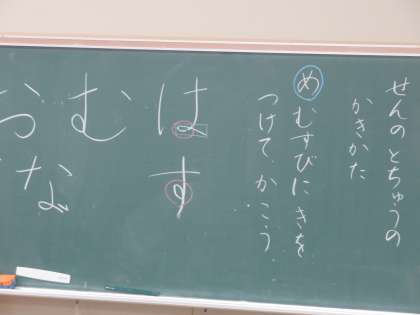 せんのとちゅうの
かきかた
め むすびにきを
つけて かこう
はす
むな
お